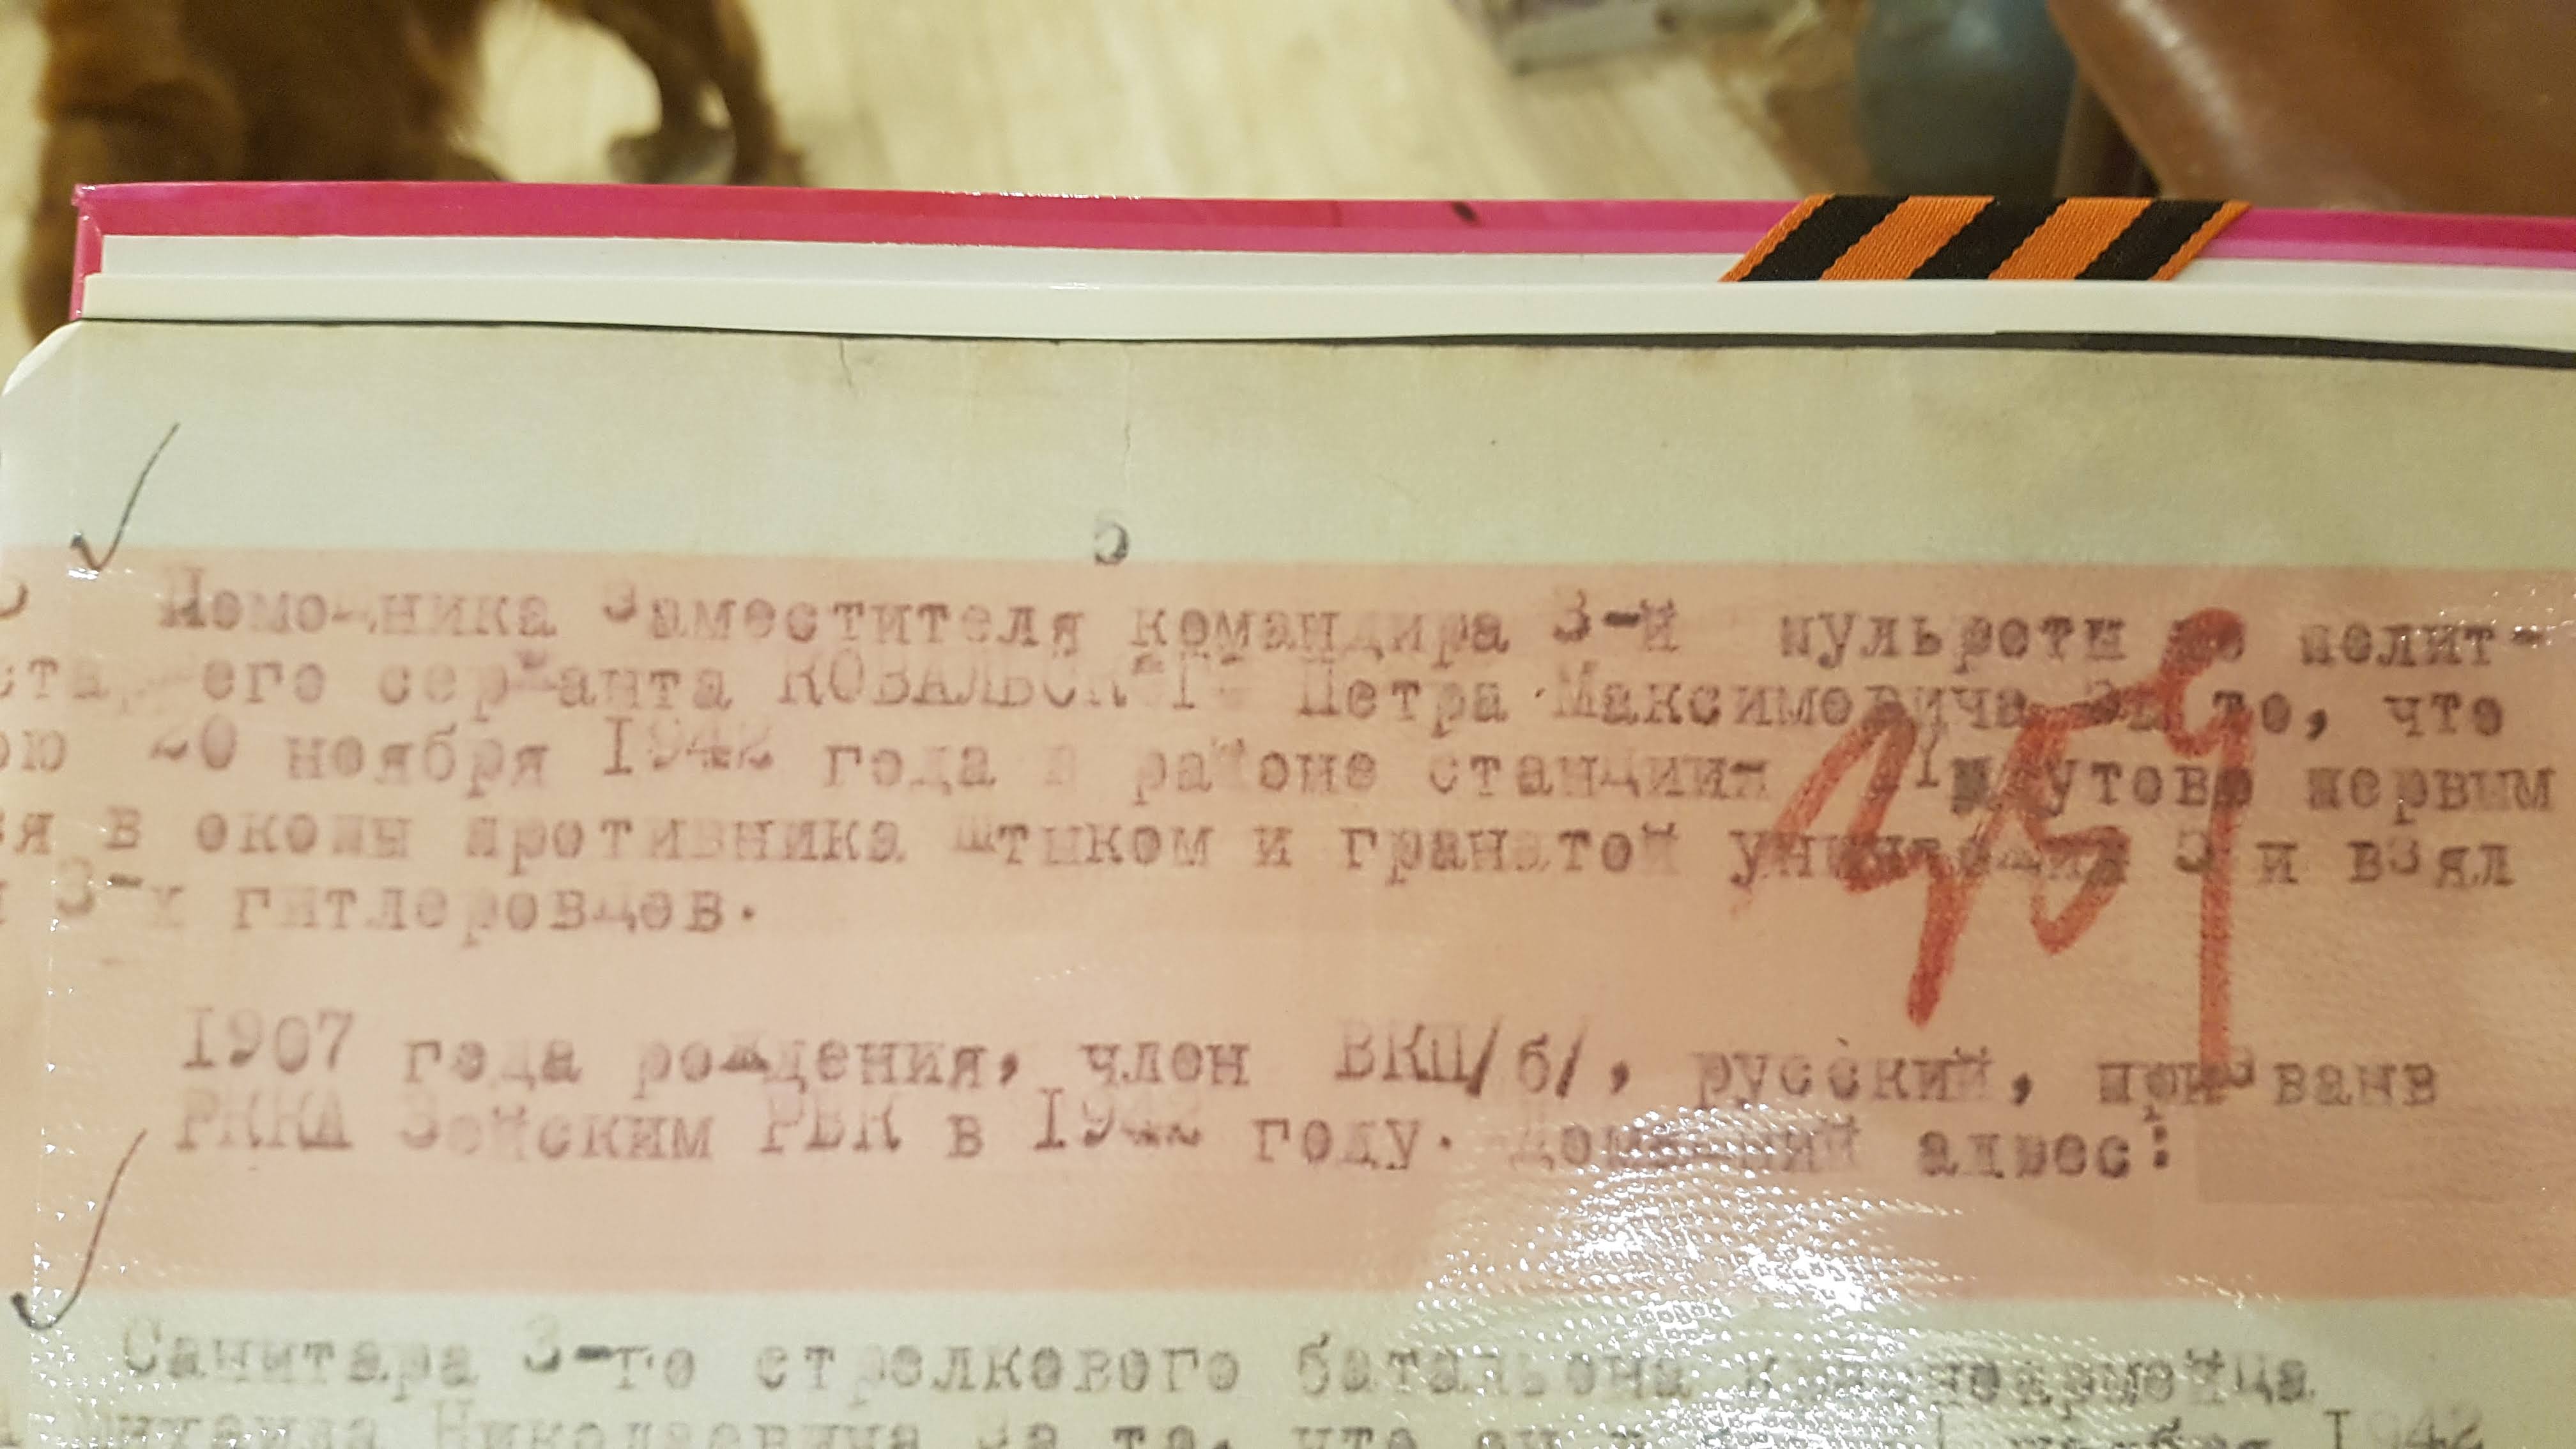 5
Помощника Заместителя командира 3-й пульроти по полит-
его сержанта КОВАЛЬСКОГО Петра Максимовича за то, что
20 ноября 1942 года в районе станции первым
в окопы противника штыком и гранатой уничтожил 3 и взял
3-х гитлеровцев.
459
1907 года рождения, член ВКП/б/, русский, призванв
РККА Зейским РВК в 1942 году. Домашний адрес:
Санитара 3-го стрелкового батальона красноармейца
Михаила Николаевича за то, что 1942